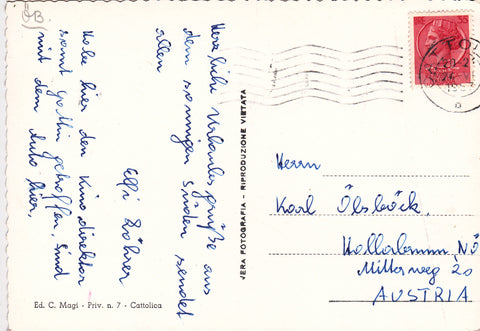 Herzliche Urlaubsgrüße aus
dem sonnigen Süden sendet
allen
Elfi
Habe hier den Kinodirektor
samt Gattin getroffen, sind
mit dem Auto hier.
Herrn
Karl Ölsböck
Hollabrunn, NÖ
Mitterweg 20
AUSTRIA
JERA FOTOGRAFIA - RIPRODUZIONE VIETATA
Ed. C. Magi - Priv. n. 7 - Cattolica